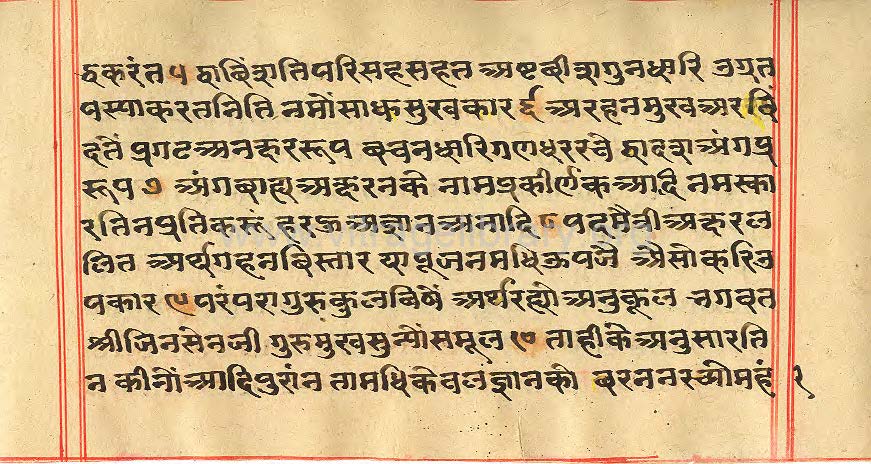 द्धकरंत ५ द्वाबिंशति परिसह सहत अष्टबीशगुनधारि उग्रत
पस्याकरत निति नमोंसाधसुखकार ६ अरहनमुखअरबिं
दतें प्रगटअनक्षरस्तूप बचनधारिगणधररचे द्वादशअंगप्र
रूप ७ अंगबाह्यअक्षरनके नामप्रकीर्णकआदि नमस्का
रतिनप्रतिकरूं हरऊअज्ञानअनादि ८ पदमैत्रीअक्षरल
लित अर्थगहनबिस्तार यापूजनमधिऊपजै असोकरिउ
पकार ९ परंपरागुरुकुलबिषें अर्थरह्योअनुकूल भगवत
श्रीजिनसेनजी गुरुमुंखसुन्योंसमूल १० ताहीकेअनुसारति
न कीनोंआदिपुरांन तामधिकेवलंज्ञानको बरनन महं २
www.vitragelibrary.org